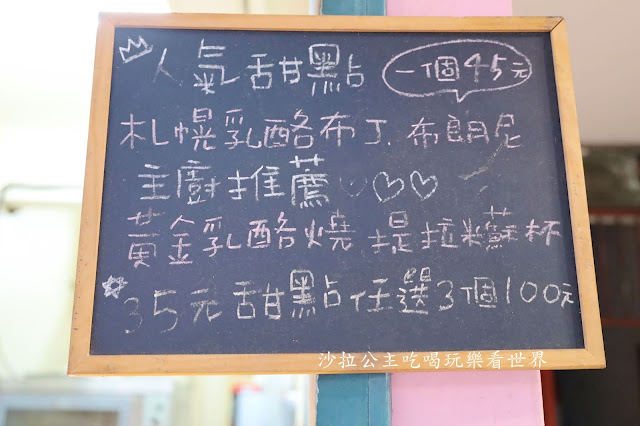 人氣甜點 一個45元
札幌乳酪布丁.布朗尼
主廚推薦♡♡♡
黃金乳酪燒 提拉米蘇杯
35元甜點任選3個100元
沙拉公主吃喝玩樂看世界